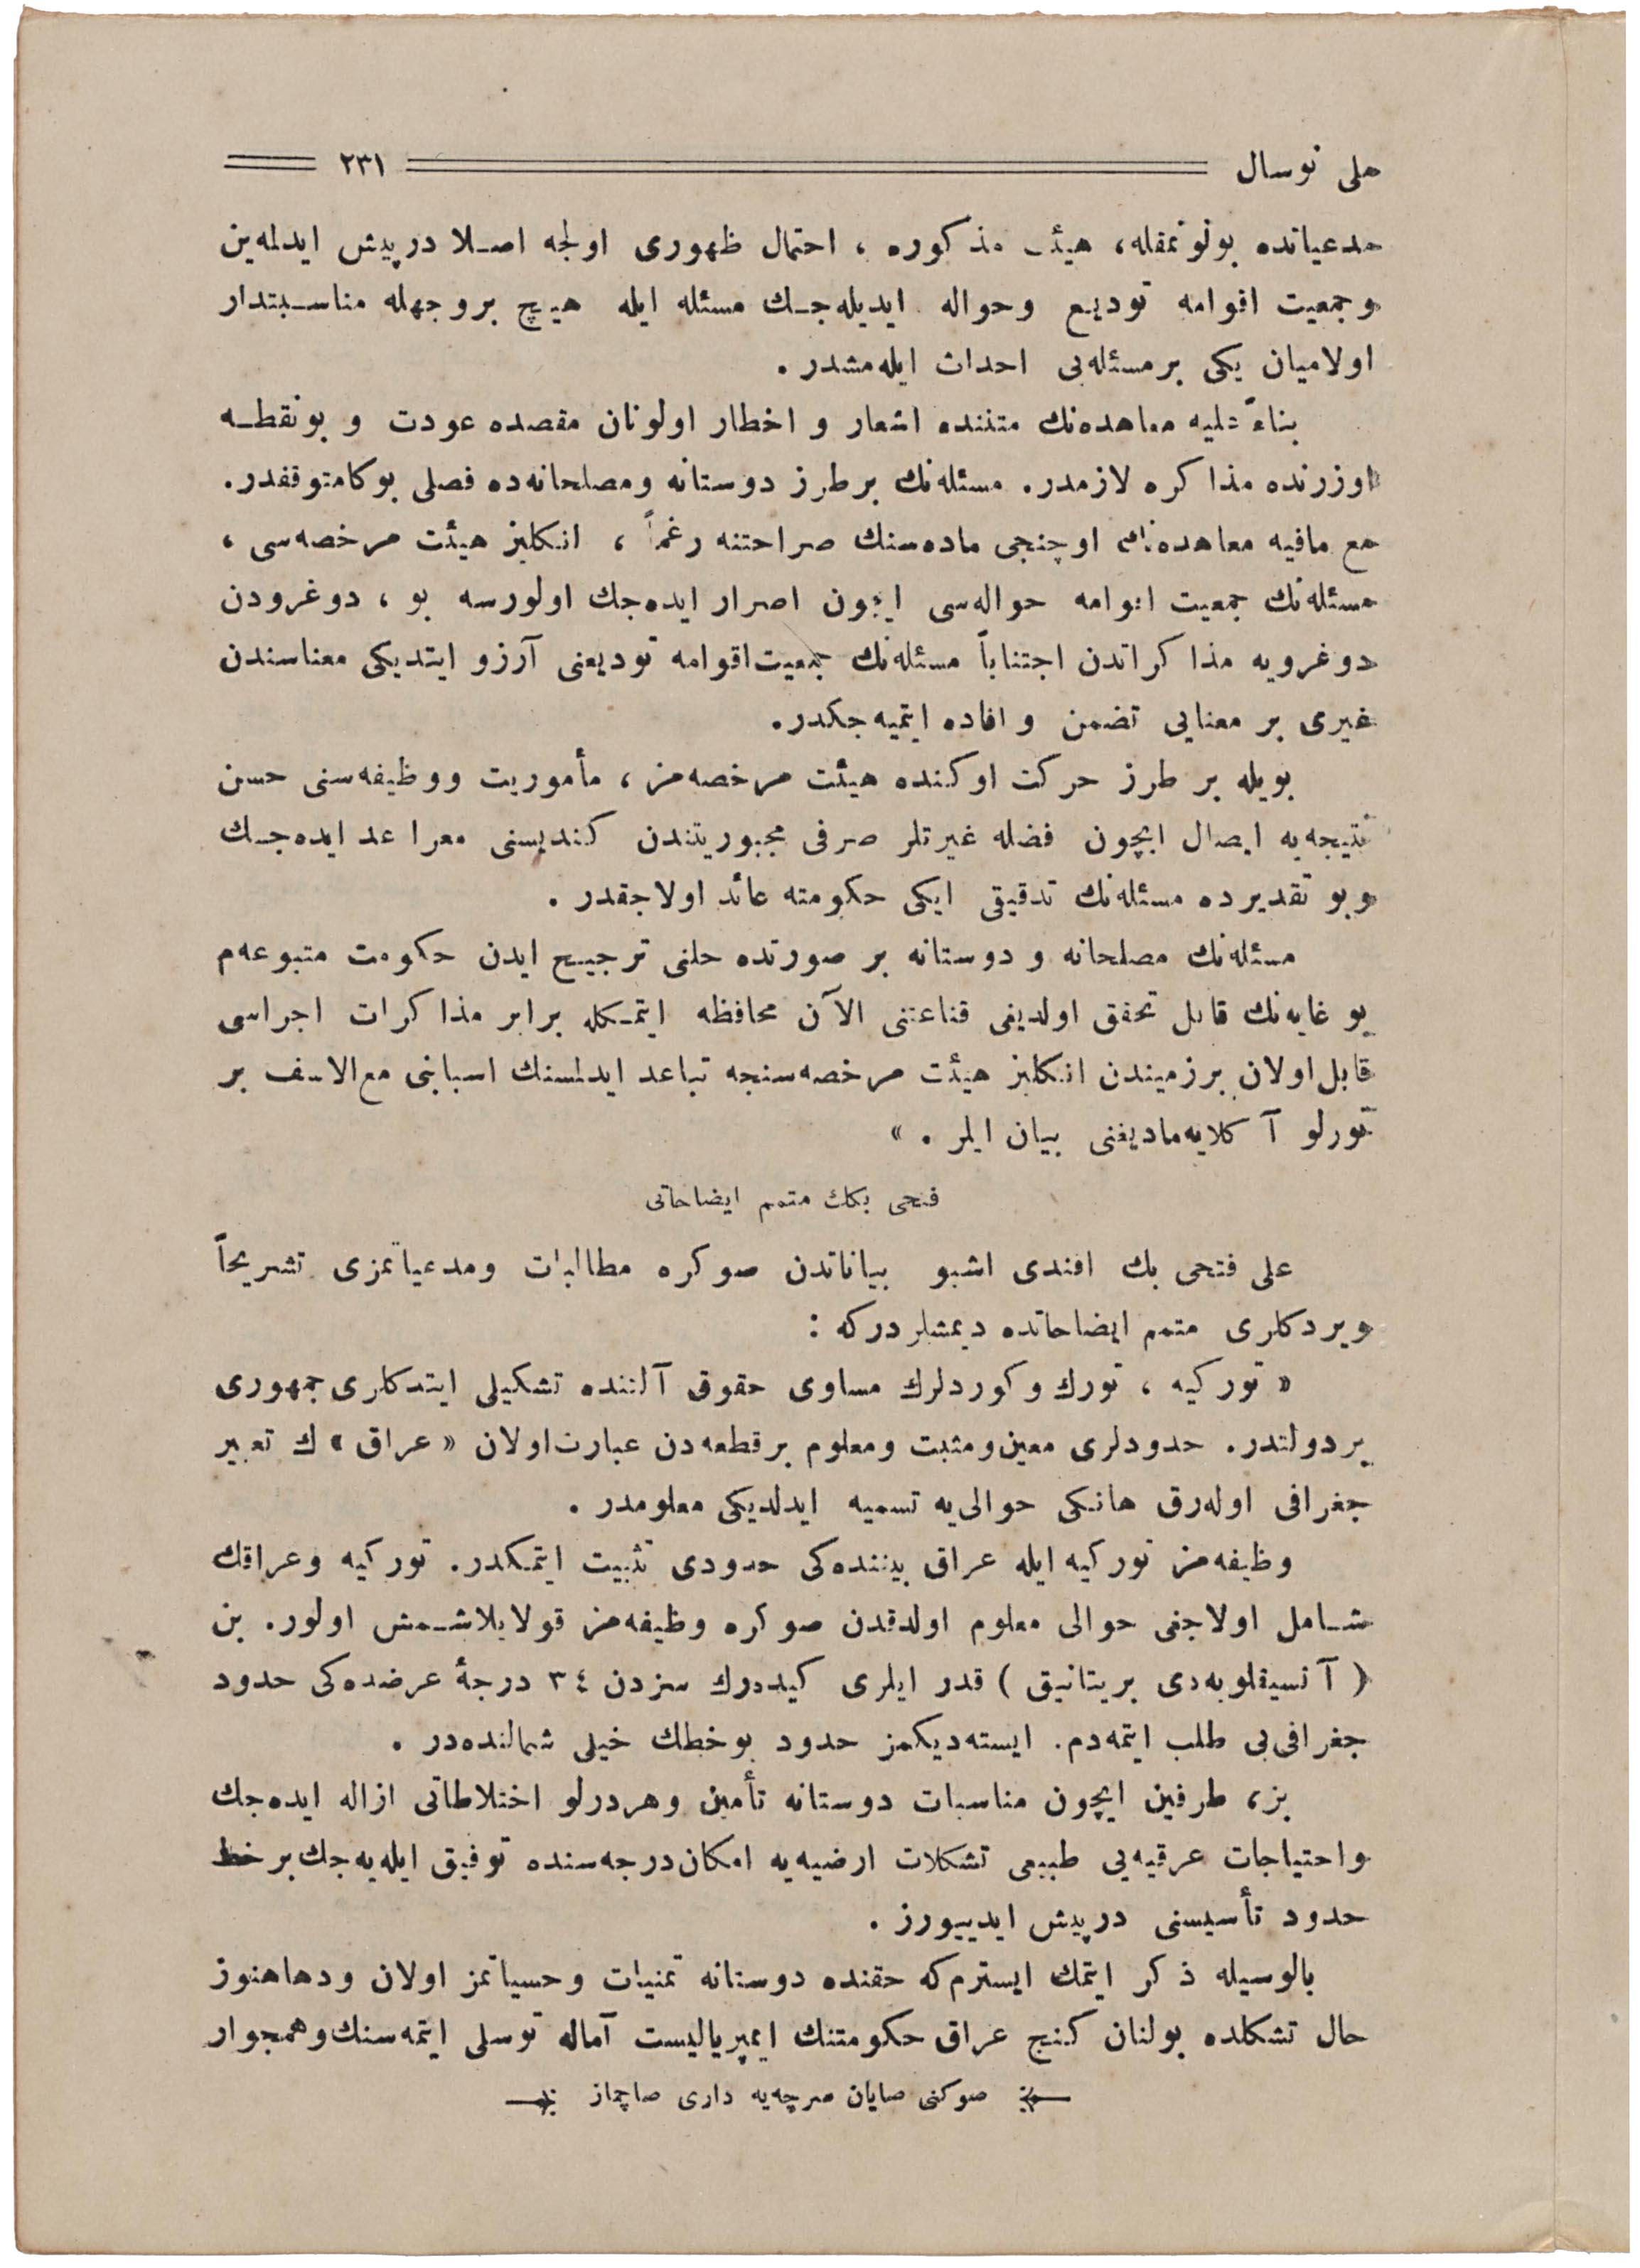 ملی نوسال ٢٣١
مدعیاتده بولونمقله، هیئت مذكوره ، احتمال ظهوری اولجه اصلا درپیش ایدلمه‌ین
وجمعیت اقوامه تودیع وحواله ایدیله‌جك مسئله ایله هیچ بروجهله مناسبتدار
اولامیان یكی برمسئله‌یی احداث ایله‌مشدر .
بناءً علیه معاهده‌نك متننده اشعار و اخطار اولونان مقصده عودت و بونقطه
اوزرنده مذاكره لازمدر. مسئله‌نك برطرز دوستانه ومصلحانه‌ده فصلی بوكامتوقفدر.
مع مافیه معاهده‌نك اوچنجی ماده‌سنك صراحتنه رغماً ، انكلیز هیئت مرخصه‌سی ،
مسئله‌نك جمعیت اقوامه حواله‌سی ایچون اصرار ایده‌جك اولورسه بو ، دوغرودن
دوغرویه مذاكراتدن اجتناباً مسئله‌نك جمعیت‌اقوامه تودیعنی آرزو ایتدیكی معناسندن
غیری بر معنایی تضمن و افاده ایتمیه‌جكدر.
بویله بر طرز حركت اوكنده هیئت مرخصه‌مز ، مأموریت ووظیفه‌سنی حسن
نتیجه‌یه ایصال ایچون فضله غیرتلر صرفی مجبوریتندن كندیسنی معرا عد ایده‌جك
وبو تقدیرده مسئله‌نك تدقیقی ایكی حكومته عائد اولاجقدر .
مسئله‌نك مصلحانه و دوستانه بر صورتده حلنی ترجیح ایدن حكومت متبوعه‌م
بو غایه‌نك قابل تحقق اولدیغی قناعتنی الآن محافظه ایتمكله برابر مذاكرات اجراسی
قابل‌اولان برزمیندن انكلیز هیئت مرخصه‌سنجه تباعد ایدلسنك اسبابنی مع‌الاسف بر
تورلو آكلایه‌مادیغنی بیان ایلر . »
فتحی بكك متمم ایضاحاتی
علی فتحی بك افندی اشبو بیاناتدن صوكره مطالبات ومدعیاتمزی تشریحاً
ویردكلری متمم ایضاحاتده دیمشلردركه :
« توركیه ، تورك وكوردلرك مساوی حقوق آلتنده تشكیلی ایتدكلری‌جمهوری
بردولتدر. حدودلری معین‌ومثبت ومعلوم برقطعه‌دن عبارت‌اولان « عراق » ك تعبیر
جغرافی اوله‌رق هانكی حوالی‌یه تسمیه ایدلدیكی معلومدر .
وظیفه‌مز توركیه ایله عراق بیننده‌كی حدودی تثبیت ایتمكدر. توركیه وعراقك
شامل اولاجغی حوالی معلوم اولدقدن صوكره وظیفه‌مز قولایلاشمش اولور. بن
( آنسیقلوپه‌دی بریتانیق ) قدر ایلری كیده‌رك سزدن ٣٤ درجهٔ عرضده‌كی حدود
جغرافی‌یی طلب ایتمه‌دم. ایسته‌دیكمز حدود بوخطك خیلی شمالنده‌در .
بز، طرفین ایچون مناسبات دوستانه تأمین وهردرلو اختلاطاتی ازاله ایده‌جك
واحتیاجات عرقیه‌یی طبیعی تشكلات ارضیه‌یه امكان‌درجه‌سنده توفیق ایله‌یه‌جك‌برخط
حدود تأسیسنی درپیش ایدییورز .
بالوسیله ذكر ایتمك ایسترم‌كه حقنده دوستانه تمنیات وحسیاتمز اولان ودهاهنوز
حال تشكلده بولنان كنج عراق حكومتنك ایمپریالیست آماله توسلی ایتمه‌سنك‌وهمجوار
صوكنی صایان سرچه‌یه داری صاچماز